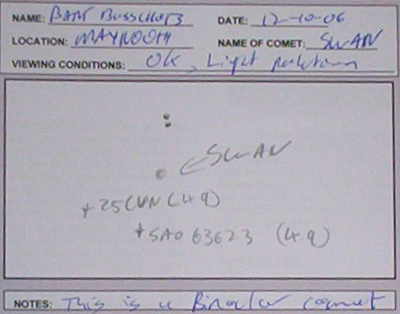 NAME: BART BUSSCHOTS DATE: 12-10-06
LOCATION: MAYNOOTH NAME OF COMET: SWAN
VIEWING CONDITIONS: OK, Light pollution
SWAN
25 CVN (4.9)
SAO 63623 (4.9)
NOTES: This is a Binocular comet